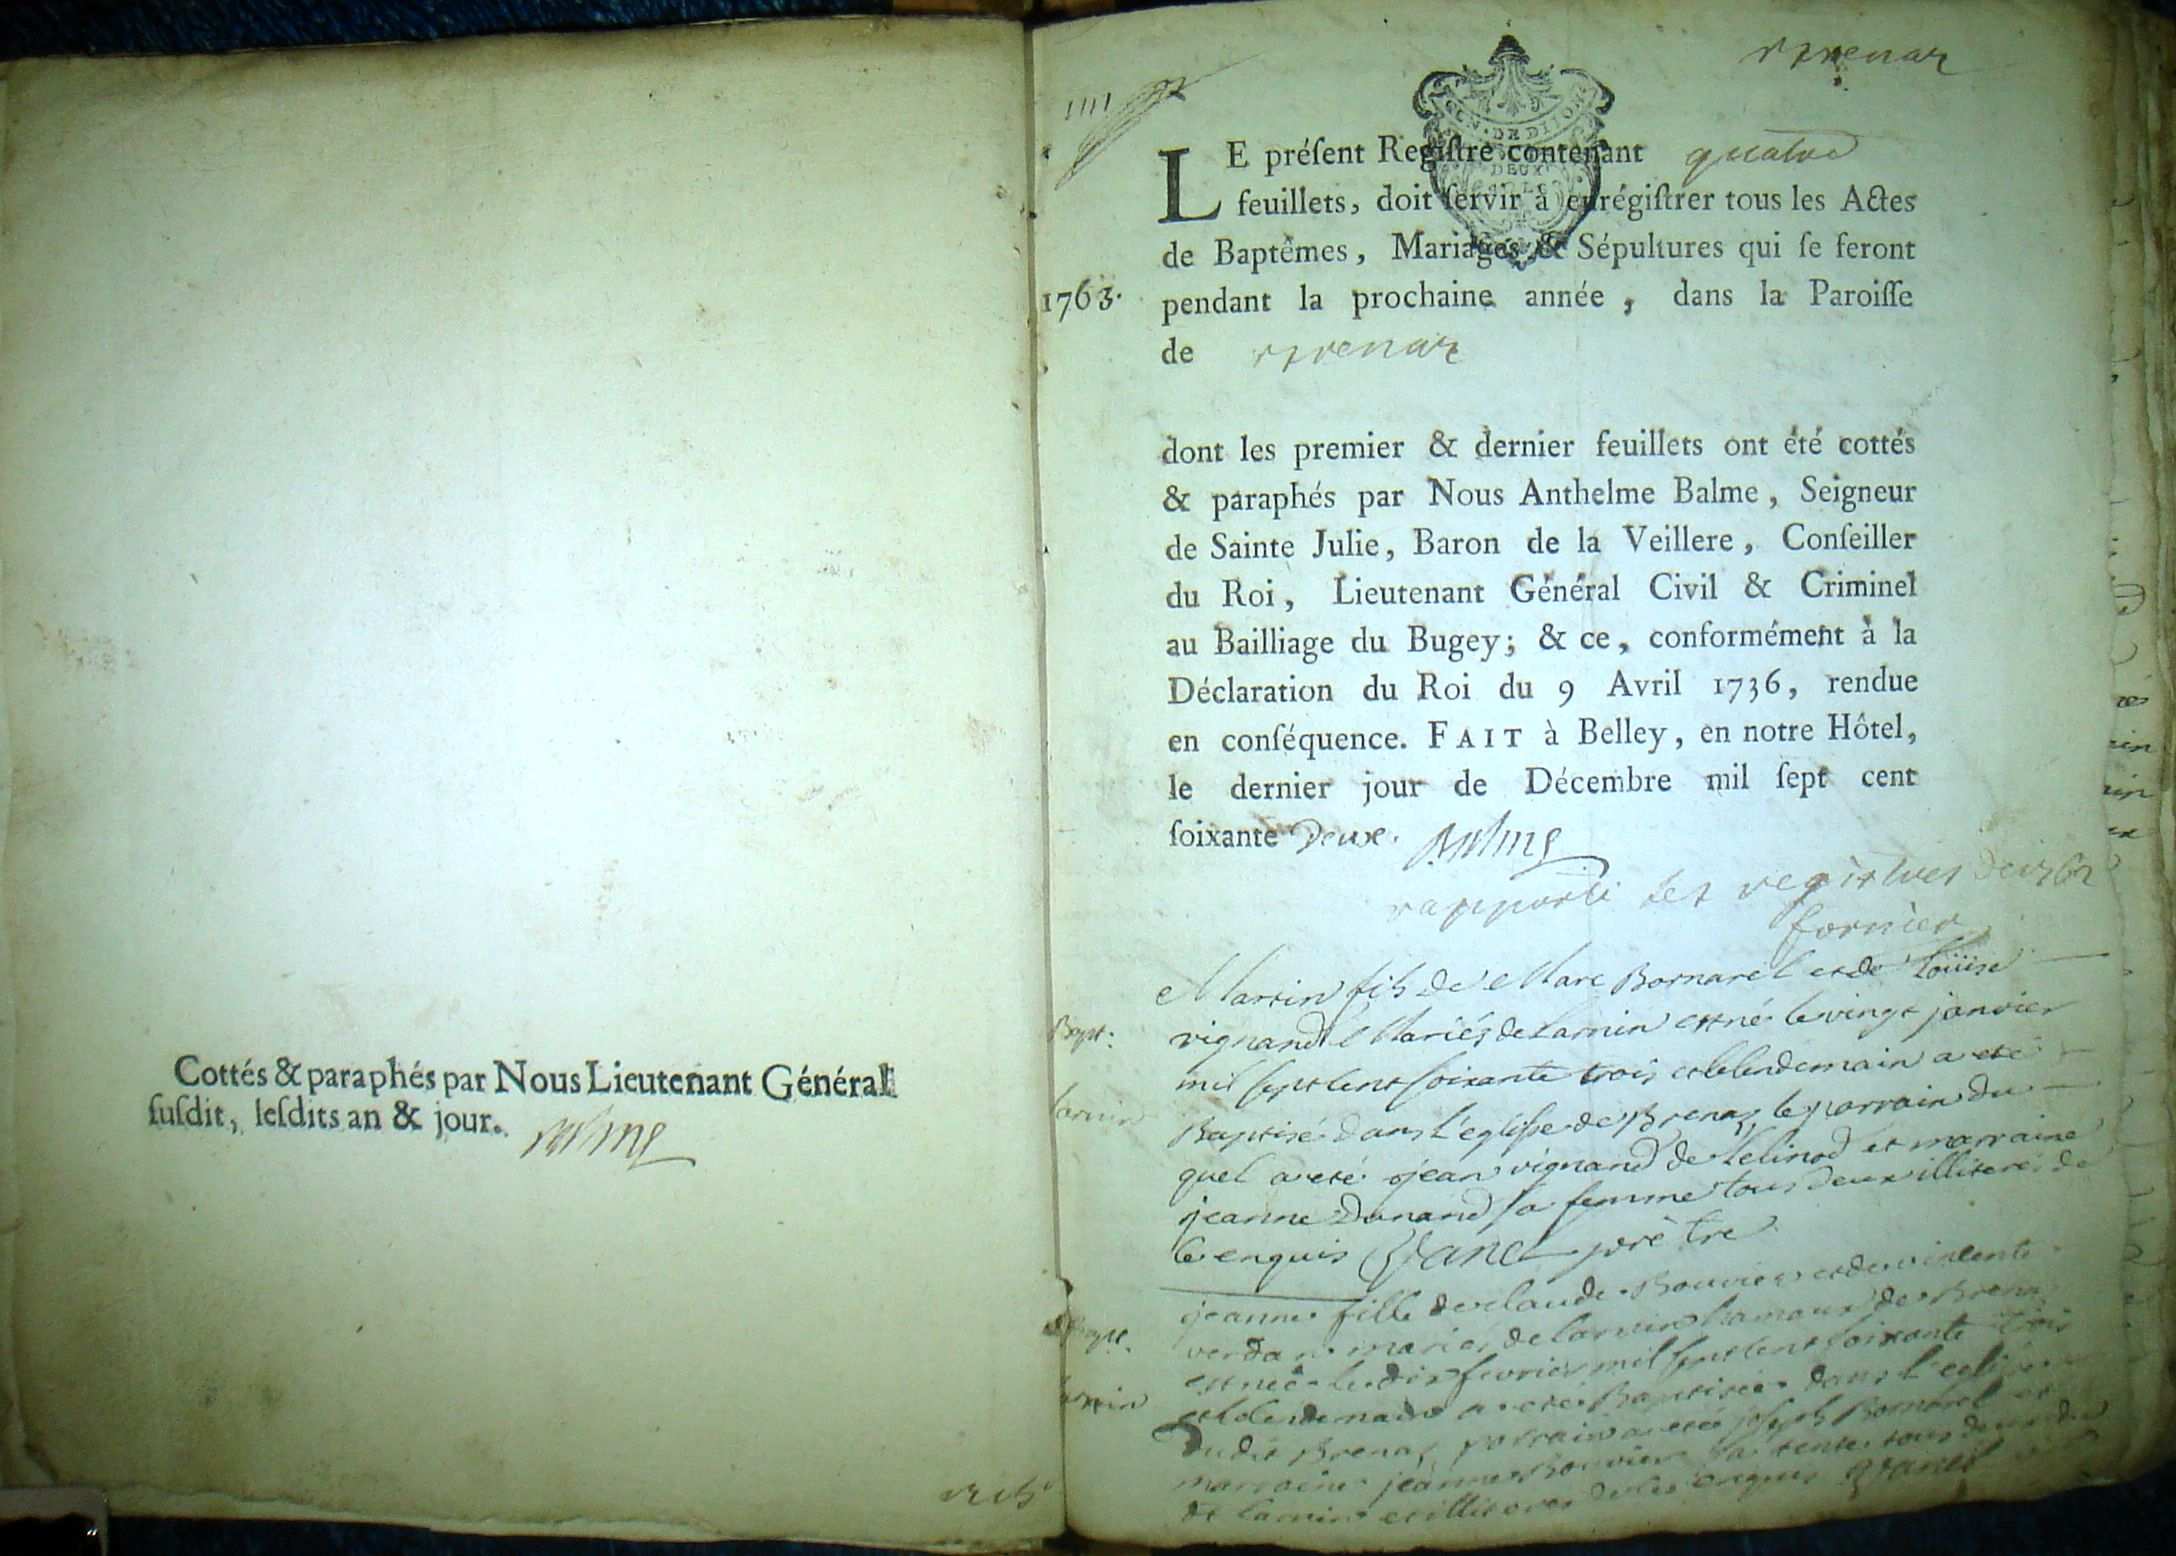 Cottés & paraphés par Nous Lieutenant Général
ſuſdit, leſdits an & jour. Balme
1111
GEN. DE DIJON
DEUX
LE préſent Regiſtre contenant quatre
feuillets, doit ſervir à enrégiſtrer tous les Actes
de Baptêmes, Mariages & Sépultures qui ſe feront
1763. pendant la prochaine année, dans la Paroiſſe
de
dont les premier & dernier feuillets ont été cottés
& paraphés par Nous Anthelme Balme, Seigneur
de Sainte Julie, Baron de la Veillere, Conſeiller
du Roi, Lieutenant Général Civil & Criminel
au Bailliage du Bugey; & ce, conformément à la
Déclaration du Roi du 9 Avril 1736, rendue
en conſéquence. FAIT à Belley, en notre Hôtel,
le dernier jour de Décembre mil ſept cent
ſoixante deux. Balme
rapporté les registres de 1762
fornier
Martin fils de Marc Bornarel et de Loüise
Bapt. vignand Mariés de Larnin est né le vingt janvier
mil sept cent soixante trois et le lendemain a eté
larnin Baptisé dans l'eglise de Brenaz, le parrain du
quel a eté jean vignand de et marraine
jeanne Dunand sa femme tous deux illiteré de
ce enquis prètre
jeanne fille de claude Bouvier et de vincente
Bapt. mariés de larnin hamaux de Brenaz
est née le dix fevrier mil sept cent soixante trois
larnin et le lendemain a eté Baptisée dans l'eglise
dudit Brenaz, parrain a eté joseph Bornarel et
marraine jeanne Bouvier sa tente tous deux
de larnin et illiteres de ce enquis